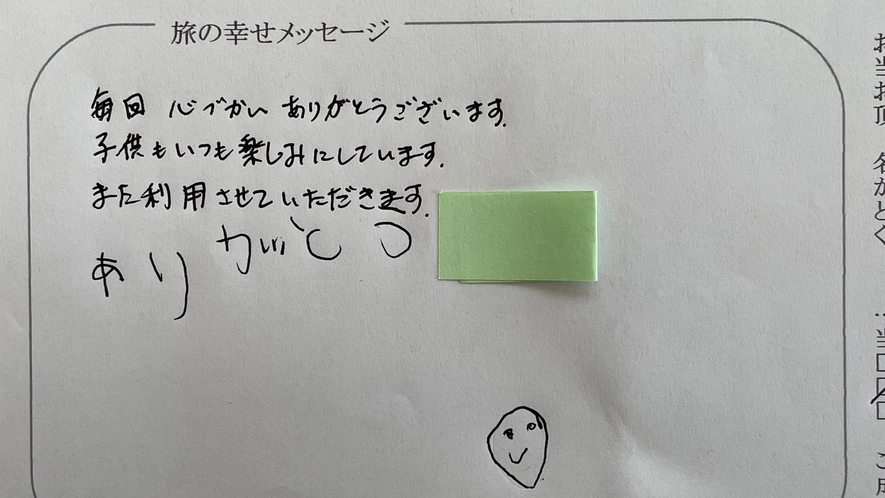 旅の幸せメッセージ
毎回 心づかい ありがとうございます.
子供もいつも楽しみにしています.
また利用させていただきます.
ありがとう
お当お頂 名がとく